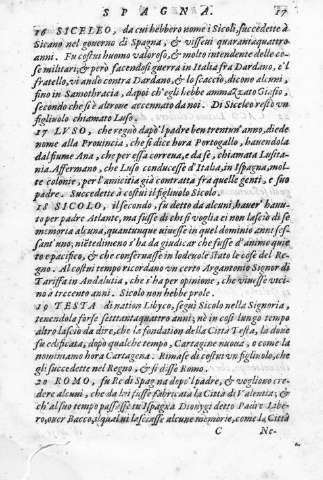 SPAGNA. 17
16 SICELEO, da cui hebbero nome i Sicoli, succedette à
Sicano nel governo di Spagna, & vissevi quarantaquattro
anni. Fu costui huomo valoroso, & molto intendente delle co-
se militari; & però facendosi guerra in Italia fra Dardano, e'l
fratello, vi andò contra Dardano, & lo scacciò, dicono alcuni,
fino in Samothracia, dapoi ch'egli hebbe ammazzato Giasio,
secondo che s'è altrove accennato da noi. Di Siceleo restò un
figliuolo chiamato Luso.
17 LVSO, che regnò dapò'l padre ben trentun' anno, diede
nome alla Provincia, che si dice hora Portogallo, havendola
dal fiume Ana, che per essa correa, e da se, chiamata Lusita-
nia. Affermano, che Luso conducesse d'Italia, in Ispagna, mol-
te colonie, per l'amicitia già contratta fra quelle genti, e suo
padre. Succedette à costui il figliuolo Sicolo.
18 SICOLO, il secondo, fu detto da alcuni, haver' havu-
to per padre Atlante, ma fusse di chi si voglia ei non lasciò di se
memoria alcuna, quantunque vivesse in quel dominio anni ses-
sant' uno; nietedimeno s'ha da giudicar che fusse d'animo quie
to e pacifico, & che conservasse in lodevole stato le cose del Re-
gno. Al costui tempo ricordano un certo Argantonio Signor di
Tariffa in Andalusia, che s'ha per opinione, che vivesse vici-
no à trecento anni. Sicolo non hebbe prole.
19 TESTA di nation Libyco, seguì Sicolo nella Signoria,
tenendola forse settantaquattro anni; nè in così lungo tempo
altro lasciò da dire, che la fondation della Città Testa, la dove
fu edificata, dopo qualche tempo, Cartagine nuova, o come la
nominiamo hora Cartagena. Rimase di costui un figliuolo, che
gli succedette nel Regno, & si disse Romo.
20 ROMO, fu Re di Spagna dopo'l padre, & vogliono cre
dere alcuni, che da lui fusse fabricata la Città di Valentia; &
ch'al suo tempo passasse in Ispagna Dionygi detto Padre Libe-
ro, over Bacco, il qual vi lasciasse alcune memorie, come la Città
C Ne-